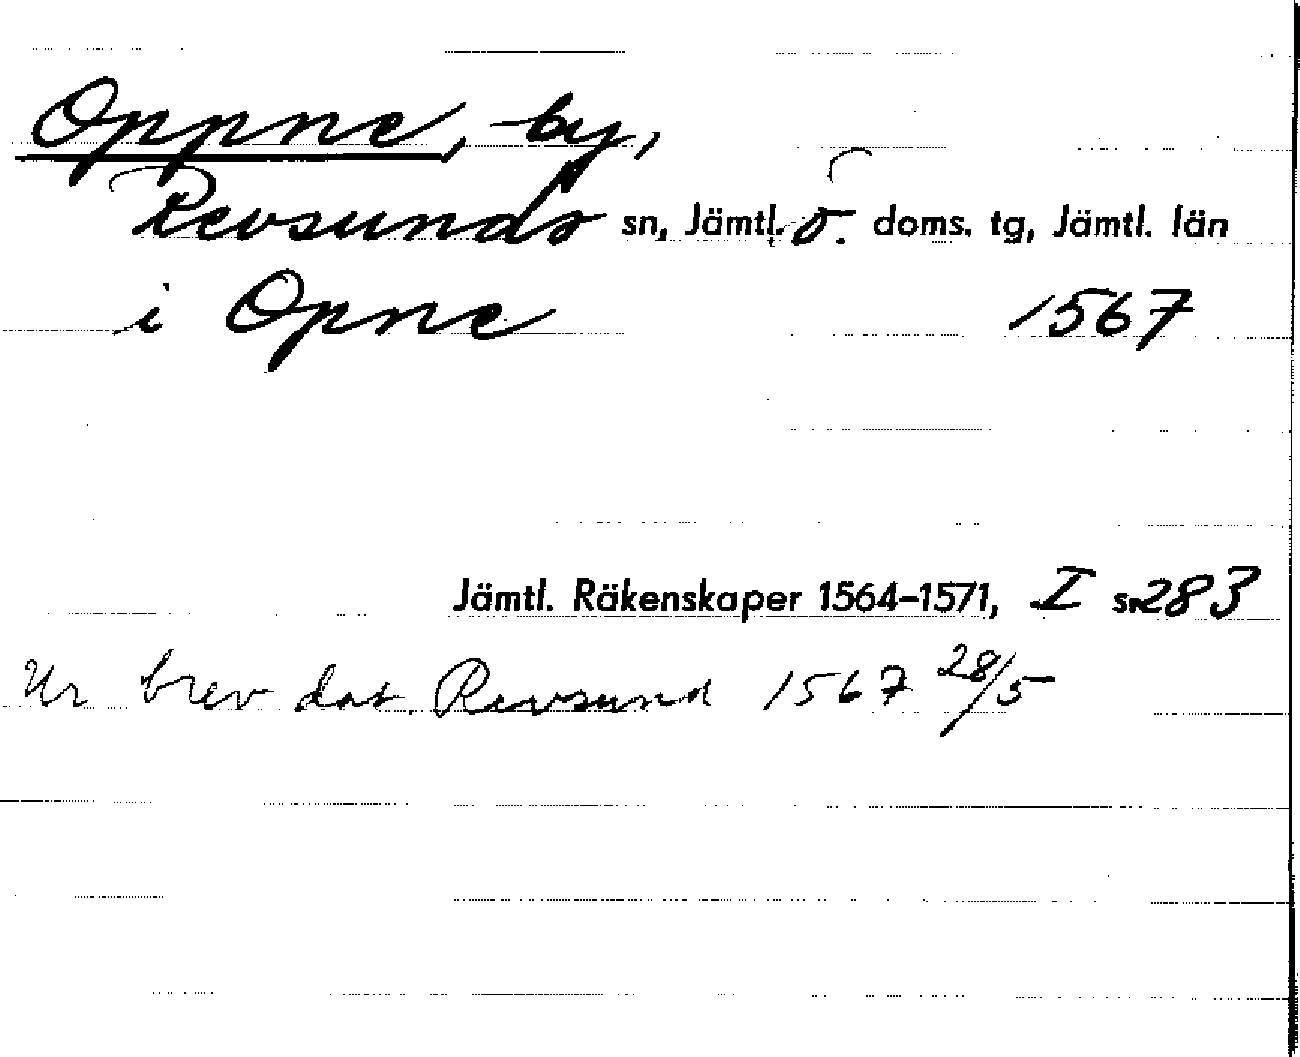 Oppne, by,
Revsunds sn, Jämtl. ö. doms. tg, Jämtl. län
i Opne 1567
Jämtl. Räkenskaper 1564-1571, I s. 283
Ur brev dat. Revsund 1567 28/5